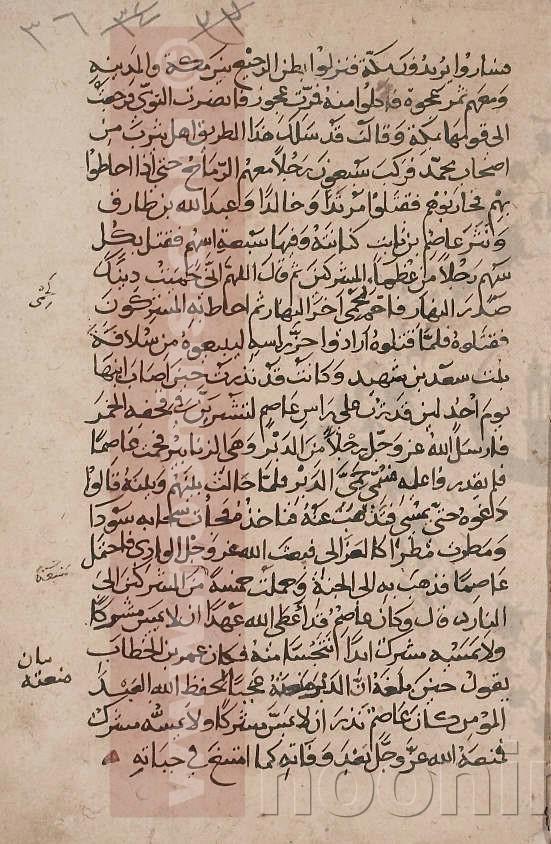 ٣٦ ٣٤ ٣٧
فساروا يريدون مكة فنزلوا بطن الرجيع بين مكة والمدينة
ومعهم تمر عجوة فاكلوا منه فمرت عجوز فابصرت النوى فرجعت
الى قومها بمكة وقالت قد سلك هذا الطريق اهل يثرب من
اصحاب محمد فركب سبعون رجلا معهم الرماح حتى اذا احاطوا
بهم فحاربوهم فقتلوا مرثدا وخالدا وعبد الله بن طارق
ونثر عاصم بن ثابت كنانته وفيها سبعة اسهم فقتل بكل
سهم رجلا من عظماء المشركين ثم قال اللهم انى حميت دينك
صدر النهار فاحم لحمى اخر النهار ثم احاط به المشركون
فقتلوه فلما قتلوه ارادوا حز راسه ليبيعوه من سلافة
بنت سعد بن شهيد وكانت قد نذرت حين اصاب ابنها
يوم احد لين قدرت على راس عاصم لتشربن فى قحفه الخمر
فارسل الله عز وجل رجلا من الدبر وهى الزنابير فحمت عاصما
فلم يقدروا عليه فسمى حمى الدبر فلما حالت بينهم وبينه قالوا
دعوه حتى يمسى فتذهب عنه فناخذه فجات سحابة سودا
ومطرت مطرا كالعزالى فبعث الله عز وجل الوادى فاحتمل
عاصما فذهب به الى الجنة وحملت خمسة من المشركين الى
النار قال وكان عاصم قد اعطى الله عهدا ان لا يمس مشركا
ولا يمسه مشرك ابدا تنجسا منه فكان عمر بن الخطاب
يقول حين بلغه ان الدبر منعته عجبا لحفظ الله العبد
المومن كان عاصم نذر ان لا يمس مشركا ولا يمسه مشرك
فمنعه الله عز وجل بعد وفاته كما امتنع فى حياته
لحمى
بيان
منعته
noonin